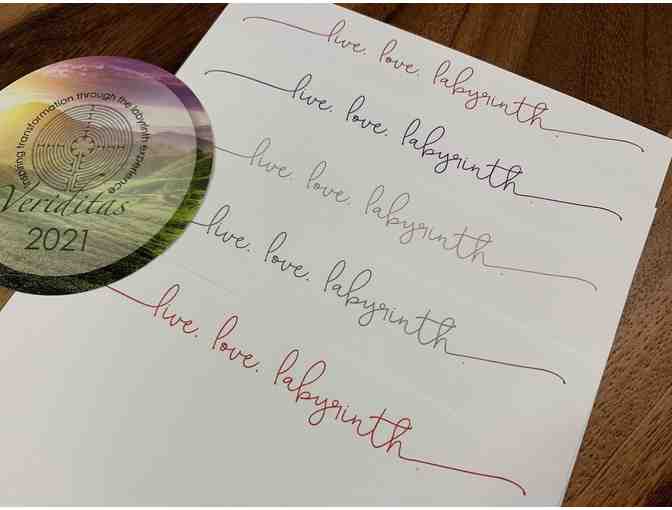 live. love. labyrinth.
live. love. labyrinth.
live. love. labyrinth.
live. love. labyrinth.
live. love. labyrinth.
inspiring transformation through the labyrinth experience
Veriditas
2021